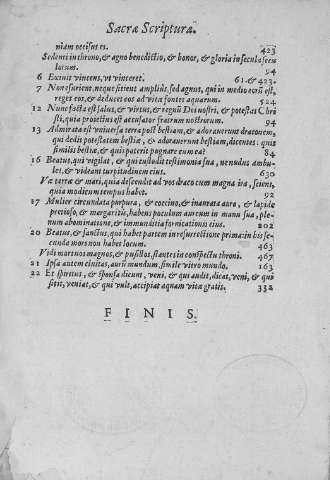 Sacræ Scripturæ.
niam occisus es. 423
Sedenti in throno, & agno benedictio, & honor, & gloria in secula seculorum. 94
6 Exiuit vincens, vt vinceret. 61. & 423.
7 Non esurient. neque sitient ampliùs. sed agnus, qui in medio erũ est, reget eos, & deducet eos ad vitæ fontes aquarum. 524
12 Nunc facta est salus, & virtus, & regnũ Dei nostri, & potestas Christi, quia proiectus est accusator fratrum nostrorum. 94
13 Admirata est vniuersa terra post bestiam, & adorauerunt draconem, qui dedit potestatem bestiæ, & adorauerunt bestiam, dicentes: quis similis bestiæ, & quis poterit pugnare cum ea? 84
16 Beatus, qui vigilat, & qui custodit testimonia sua, ne nudus ambulet, & videant turpitudinem eius. 630
Væ terræ & mari, quia descendit ad vos draco cum magna ira, sciens, quia modicum tempus habet. 92
17 Mulier circundata purpura, & coccino, & inaurata auro, & lapide pretioso, & margaritis, habens poculum aureum in manu sua, plenum abominatione, & immunditia fornicationis eius. 202
20 Beatus, & sanctus, qui habet partem in resurrectione prima: in his secunda mors non habet locum. 463
Vidi mortuos magnos, & pusillos, stantes in conspectu throni. 467
21 Ipsa autem ciuitas, aurũ mundum, simile vitro mundo. 163
22 Et spiritus, & sponsa dicunt, veni, & qui audit, dicat, veni, & qui sitit, veniat, & qui vult, accipiat aquam vitæ gratis. 332
FINIS.